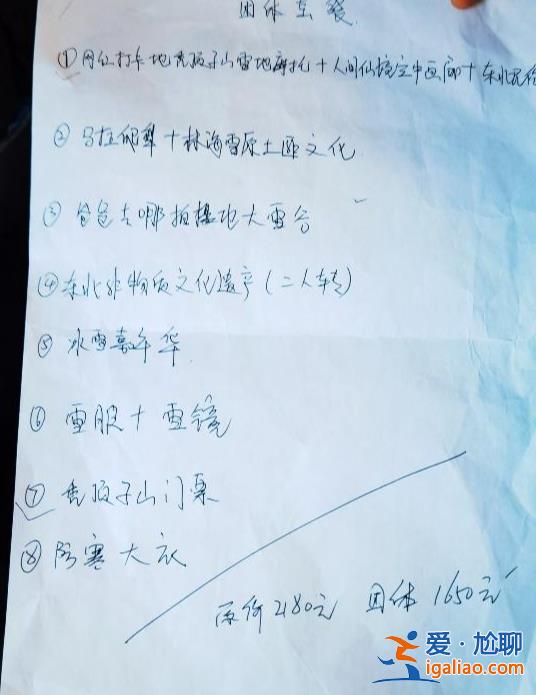 团体套餐
① 网红打卡地秃顶子山雪地摩托+人间仙境空中画廊+东北民俗
② 马拉爬犁+林海雪原土匪文化
③ 爸爸去哪拍摄地大雪谷
④ 东北非物质文化遗产(二人转)
⑤ 冰雪嘉年华
⑥ 雪服+雪镜
⑦ 秃顶子山门票
⑧ 防寒大衣
原价2180元 团体1650元
爱·尬聊
igaliao.com